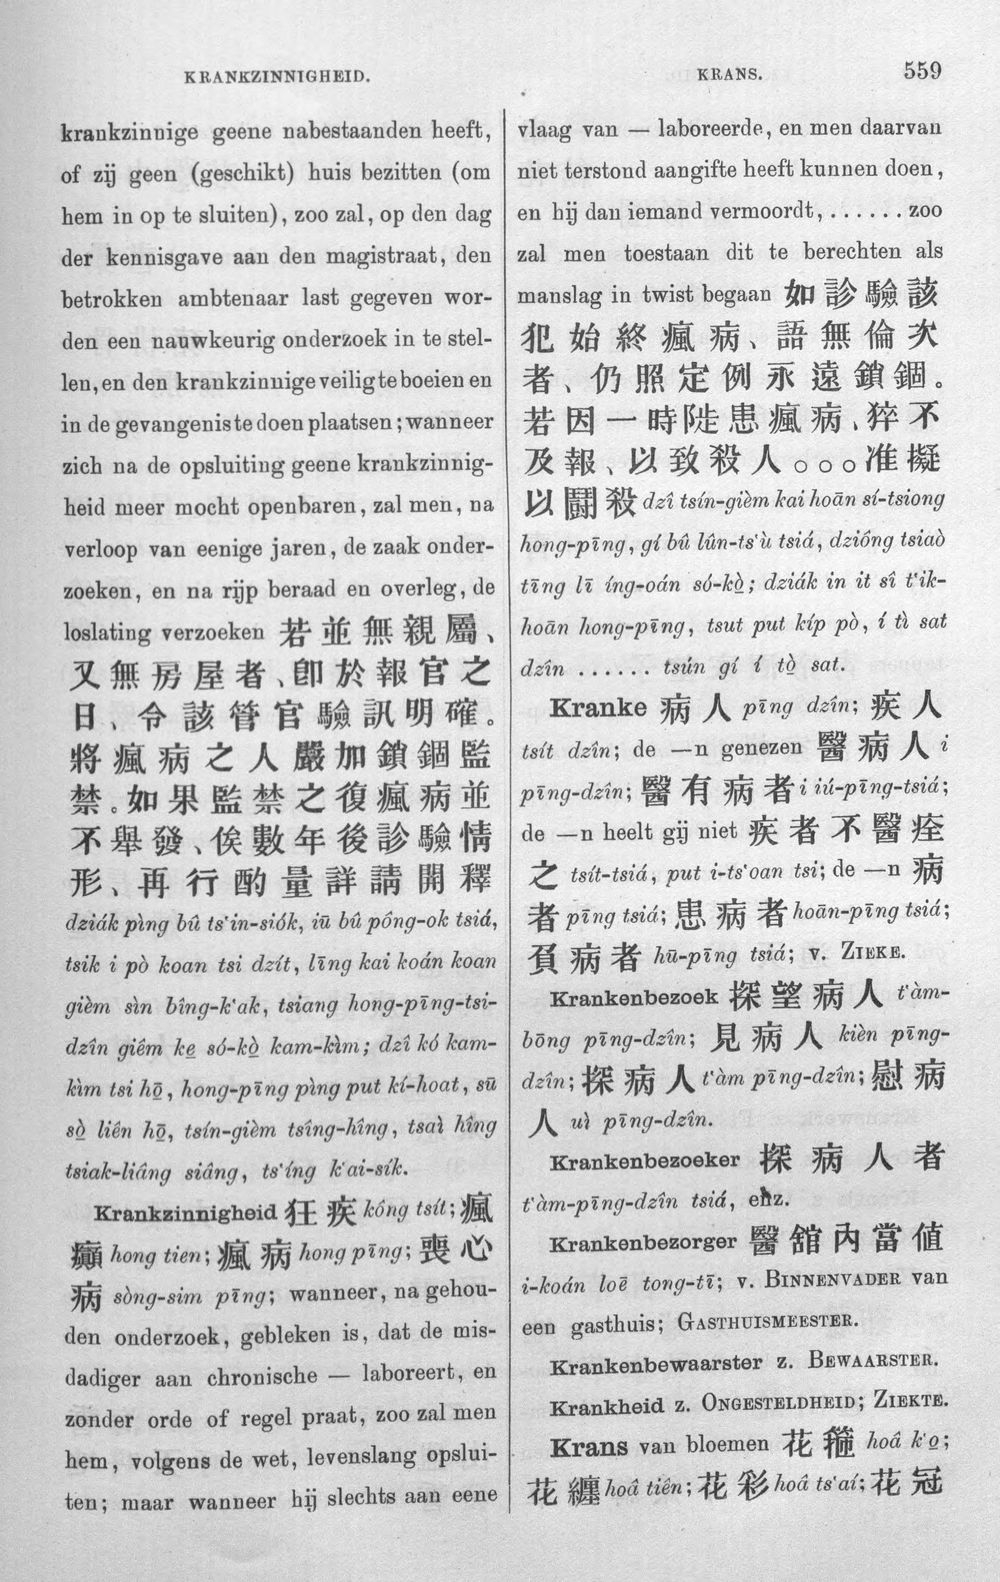 KRANKZINNIGHEID.
KRANS.
559
krankzinnige geene nabestaanden heeft,
of zij geen (geschikt) huis bezitten (om
hem in op te sluiten), zoo zal, op den dag
der kennisgave aan den magistraat, den
betrokken ambtenaar last gegeven wor-
den een nauwkeurig onderzoek in te stel-
len, en den krankzinnige veilig te boeien en
in de gevangenis te doen plaatsen; wanneer
zich na de opsluiting geene krankzinnig-
heid meer mocht openbaren, zal men, na
verloop van eenige jaren, de zaak onder-
zoeken, en na rijp beraad en overleg, de
loslating verzoeken 若並無親屬、
又無房屋者、卽於報官之
日、令該管官驗訊明確。
將瘋病之人嚴加鎖錮監
禁。如果監禁之復瘋病並
不舉發、俟數年後診驗情
形、再行酌量詳請開釋
dziák pìng bû ts'in-siók, iū bû pông-ok tsiá,
tsik i pò koan tsi dzít, līng kai koán koan
gièm sìn bîng-k'ak, tsiang hong-pīng-tsi-
dzîn giêm ke̱ só-kò̱ kam-kìm; dzî kó kam-
kìm tsi hō̱, hong-pīng pìng put kí-hoat, sū
sò̱ liên hō̱, tsín-gièm tsîng-hîng, tsaì hîng
tsiak-liâng siâng, ts'íng k'ai-sik.
Krankzinnigheid 狂疾 kông tsít; 瘋
癲 hong tien; 瘋病 hong pīng; 喪心
病 sòng-sim pīng; wanneer, na gehou-
den onderzoek, gebleken is, dat de mis-
dadiger aan chronische — laboreert, en
zonder orde of regel praat, zoo zal men
hem, volgens de wet, levenslang opslui-
ten; maar wanneer hij slechts aan eene
vlaag van — laboreerde, en men daarvan
niet terstond aangifte heeft kunnen doen,
en hij dan iemand vermoordt, ...... zoo
zal men toestaan dit te berechten als
manslag in twist begaan 如診驗該
犯始終瘋病、語無倫次
者、仍照定例永遠鎖錮。
若因一時陡患瘋病、猝不
及報、以致殺人○○○准擬
以鬬殺 dzî tsín-gièm kai hoān sí-tsiong
hong-pīng, gí bû lûn-ts'ù tsiá, dziông tsiaò
tīng lī íng-oán só-kò̱; dziák in it sî t'ik-
hoān hong-pīng, tsut put kíp pò, í tì sat
dzîn ...... tsún gí í tò̱ sat.
Kranke 病人 pīng dzîn; 疾人
tsít dzîn; de —n genezen 醫病人 i
pīng-dzîn; 醫有病者 i iú-pīng-tsiá;
de —n heelt gij niet 疾者不醫痊
之 tsít-tsiá, put i-ts'oan tsi; de —n 病
者 pīng tsiá; 患病者 hoān-pīng tsiá;
負病者 hū-pīng tsiá; v. ZIEKE.
Krankenbezoek 探望病人 t'àm-
bōng pīng-dzîn; 見病人 kièn pīng-
dzîn; 探病人 t'àm pīng-dzîn; 慰病
人 uì pīng-dzîn.
Krankenbezoeker 探病人者
t'àm-pīng-dzîn tsiá, enz.
Krankenbezorger 醫館內當値
i-koán loē tong-tī; v. BINNENVADER van
een gasthuis; GASTHUISMEESTER.
Krankenbewaarster z. BEWAARSTER.
Krankheid z. ONGESTELDHEID; ZIEKTE.
Krans van bloemen 花箍 hoâ k'o̱;
花纏 hoâ tiên; 花彩 hoâ ts'aí; 花冠